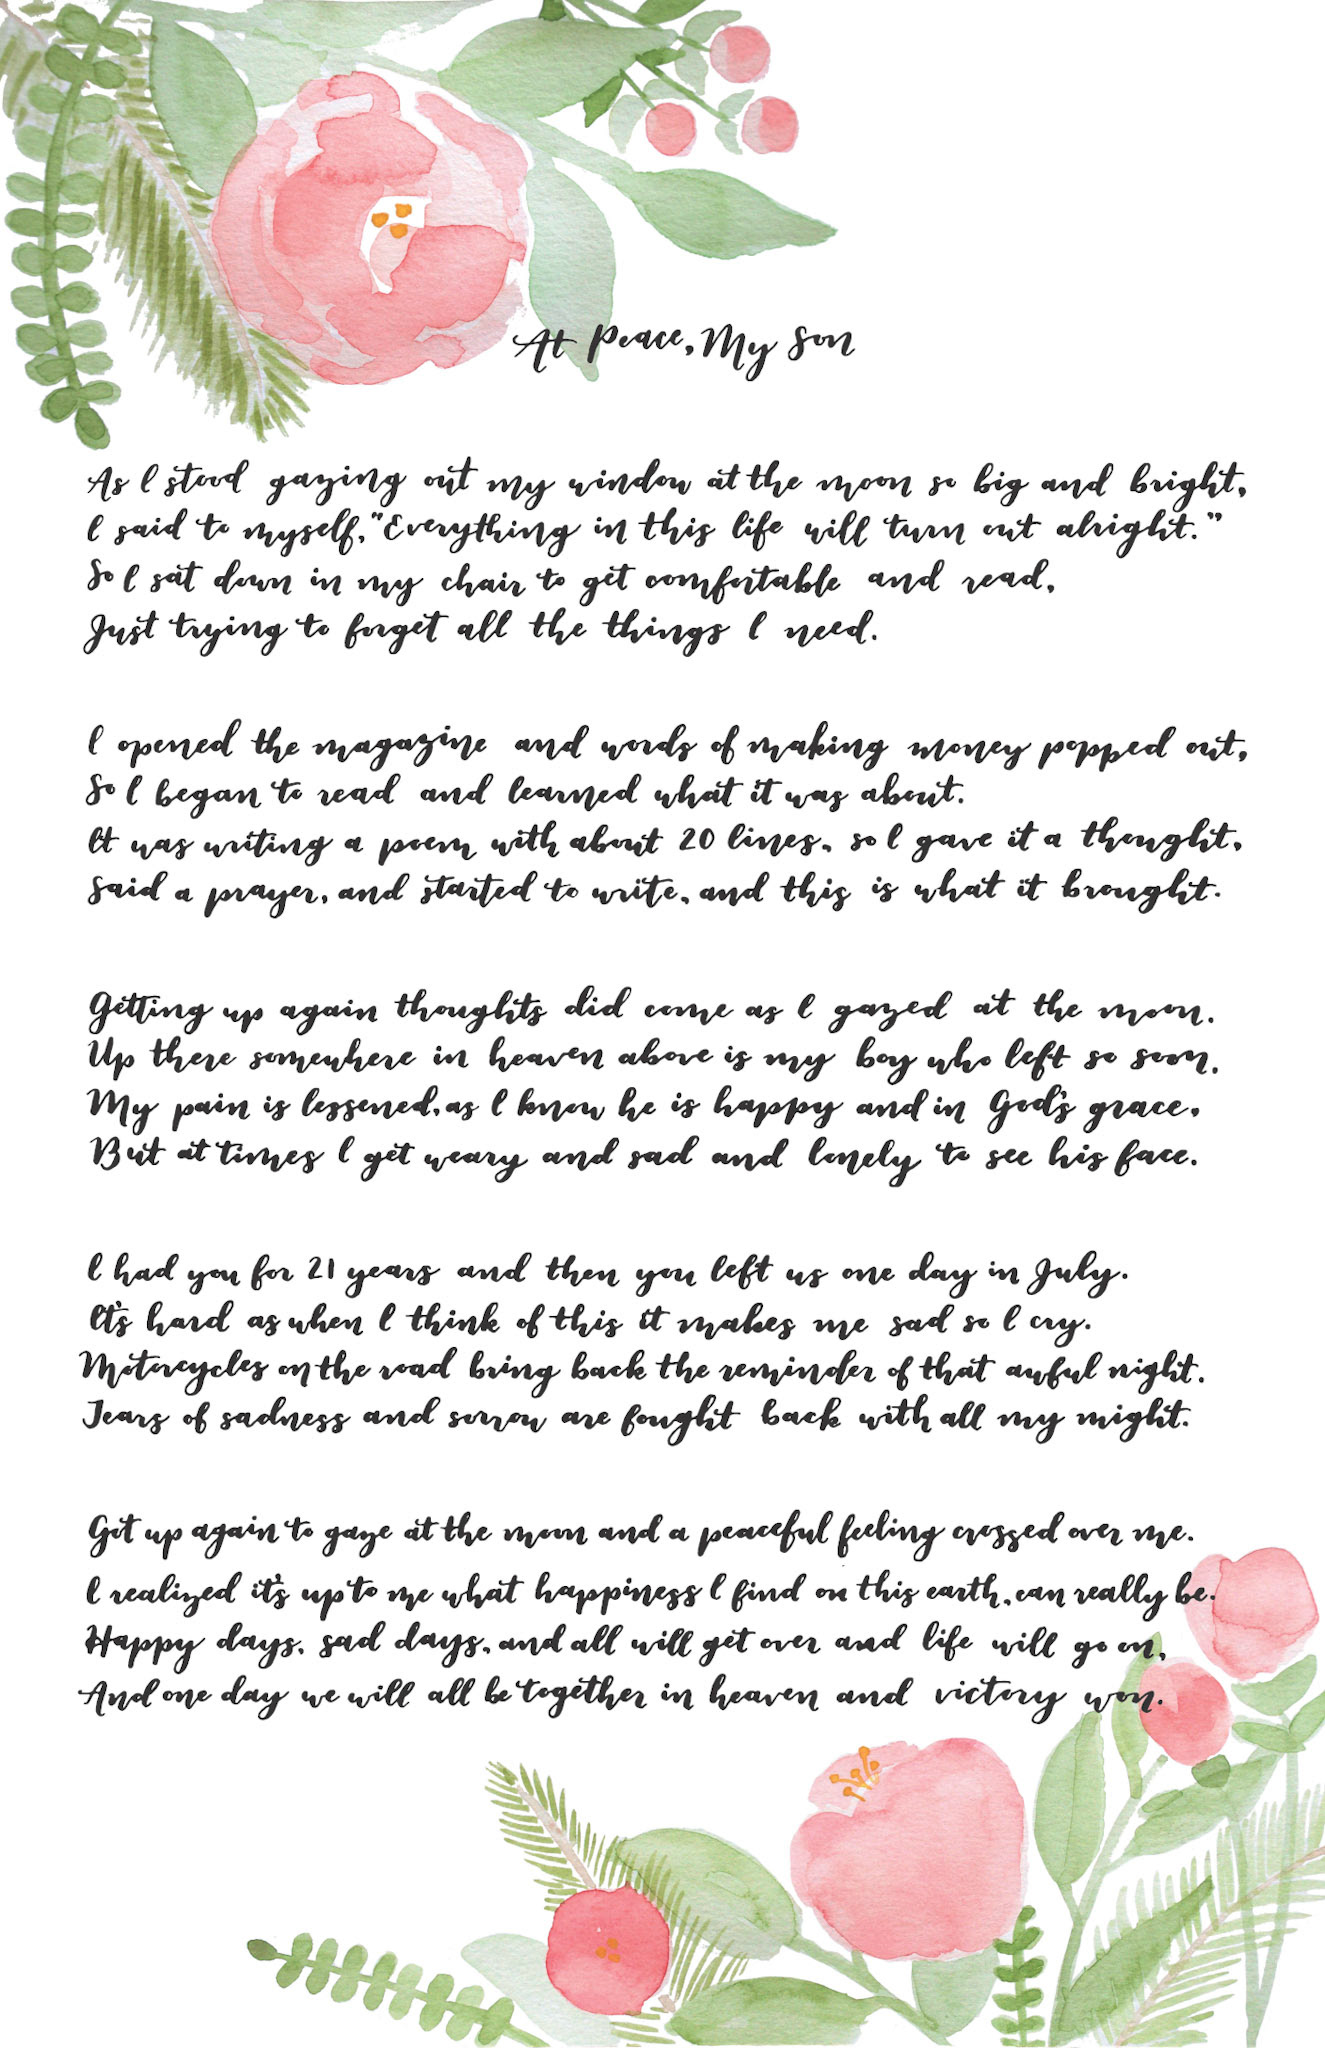 At Peace, My Son
As I stood gazing out my window at the moon so big and bright,
I said to myself, "Everything in this life will turn out alright."
So I sat down in my chair to get comfortable and read,
Just trying to forget all the things I need.
I opened the magazine and words of making money popped out,
So I began to read and learned what it was about.
It was writing a poem with about 20 lines, so I gave it a thought,
Said a prayer, and started to write, and this is what it brought.
Getting up again thoughts did come as I gazed at the moon.
Up there somewhere in heaven above is my boy who left so soon.
My pain is lessened, as I know he is happy and in God's grace,
But at times I get weary and sad and lonely to see his face.
I had you for 21 years and then you left us one day in July.
It's hard as when I think of this it makes me sad so I cry.
Motorcycles on the road bring back the reminder of that awful night.
Tears of sadness and sorrow are fought back with all my might.
Got up again to gaze at the moon and a peaceful feeling crossed over me.
I realized it's up to me what happiness I find on this earth, can really be.
Happy days, sad days, and all will get over and life will go on,
And one day we will all be together in heaven and victory won.